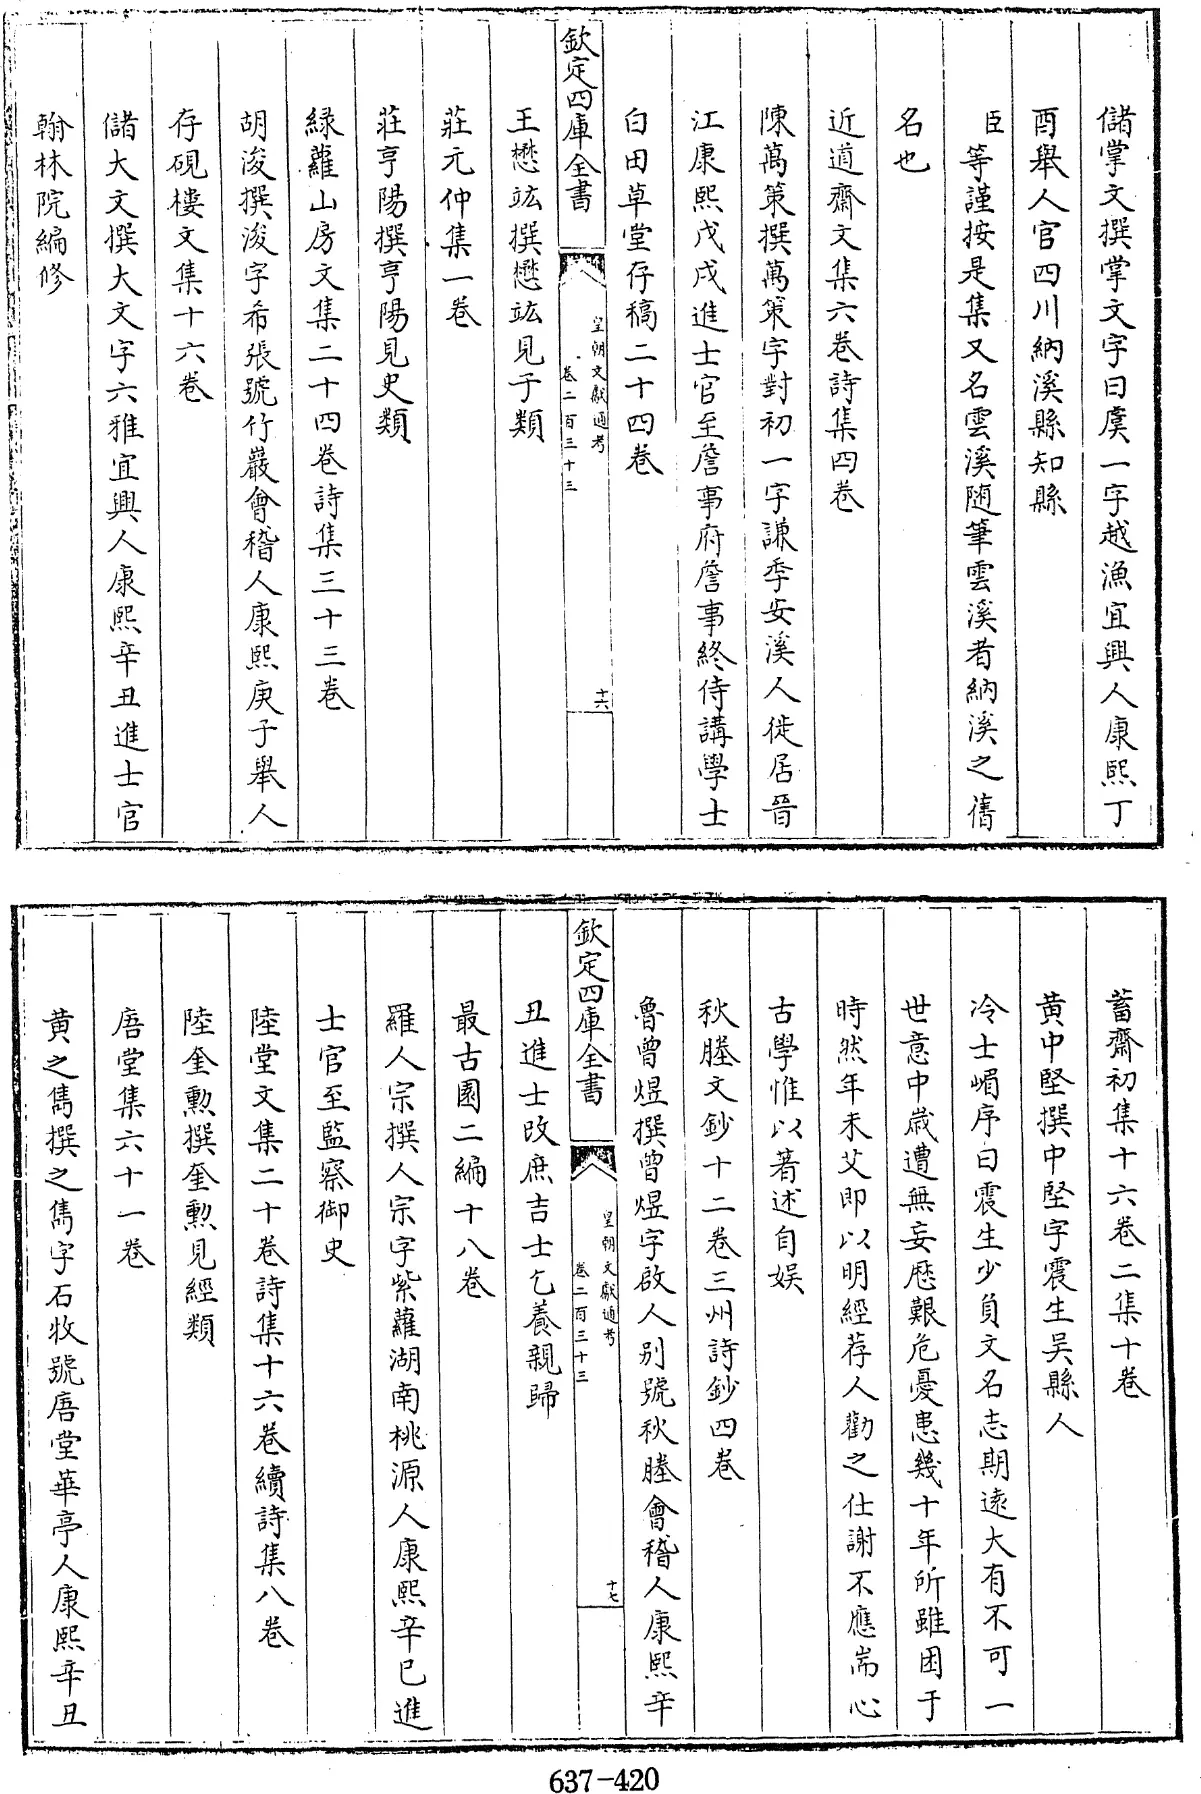 儲掌文撰掌文字曰虞一字越漁宜興人康熙丁
酉舉人官四川納溪縣知縣
臣等謹按是集又名雲溪随筆雲溪者納溪之舊
名也
近道齋文集六卷詩集四卷
陳萬策撰萬策字對初一字謙季安溪人徙居晉
江康熙戊戌進士官至詹事府詹事終侍講學士
白田草堂存稿二十四卷
王懋竑撰懋竑見子類
欽定四庫全書
皇朝文獻通考
卷二百三十三
十六
莊元仲集一卷
莊亨陽撰亨陽見史類
緑蘿山房文集二十四卷詩集三十三卷
胡浚撰浚字希張號竹巖會稽人康熙庚子舉人
存硯樓文集十六卷
儲大文撰大文字六雅宜興人康熙辛丑進士官
翰林院編修
蓄齋初集十六卷二集十卷
黄中堅撰中堅字震生吴縣人
冷士嵋序曰震生少負文名志期遠大有不可一
世意中歳遭無妄歴艱危憂患幾十年所雖困于
時然年未艾即以明經荐人勸之仕謝不應耑心
古學惟以著述自娱
秋塍文鈔十二卷三州詩鈔四卷
魯曾煜撰曾煜字啟人别號秋塍會稽人康熙辛
欽定四庫全書
皇朝文獻通考
卷二百三十三
十七
丑進士改庶吉士乞養親歸
最古園二編十八卷
羅人宗撰人宗字紫蘿湖南桃源人康熙辛巳進
士官至監察御史
陸堂文集二十卷詩集十六卷續詩集八卷
陸奎勲撰奎勲見經類
𢈪堂集六十一卷
黄之雋撰之雋字石牧號𢈪堂華亭人康熙辛丑
637-420